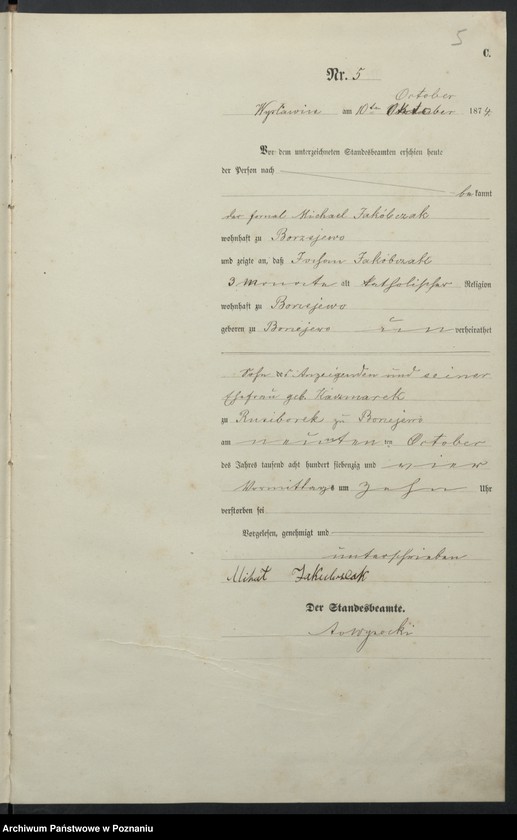 5
C.
Nr. 5
October
Wysławice am 10ten October 1874.
Vor dem unterzeichneten Standesbeamten erschien heute
der Person nach
bekannt
der fornal Michael Jakóbczak
wohnhaft zu Borzejewo
und zeigte an, daß Jakóbczak
3 Monate alt katholischer Religion
wohnhaft zu Borzejewo
geboren zu Borzejewo un verheirathet
Sohn des Anzeigenden und seiner
Ehefrau geb. Kaczmarek
zu Rusiborek zu Borzejewo
am neunten ten October
des Jahres tausend acht hundert siebenzig und vier
Vormittags um Zehn Uhr
verstorben sei
Vorgelesen, genehmigt und
unterschrieben
Jakubczak
Der Standesbeamte.
Archiwum Państwowe w Poznaniu